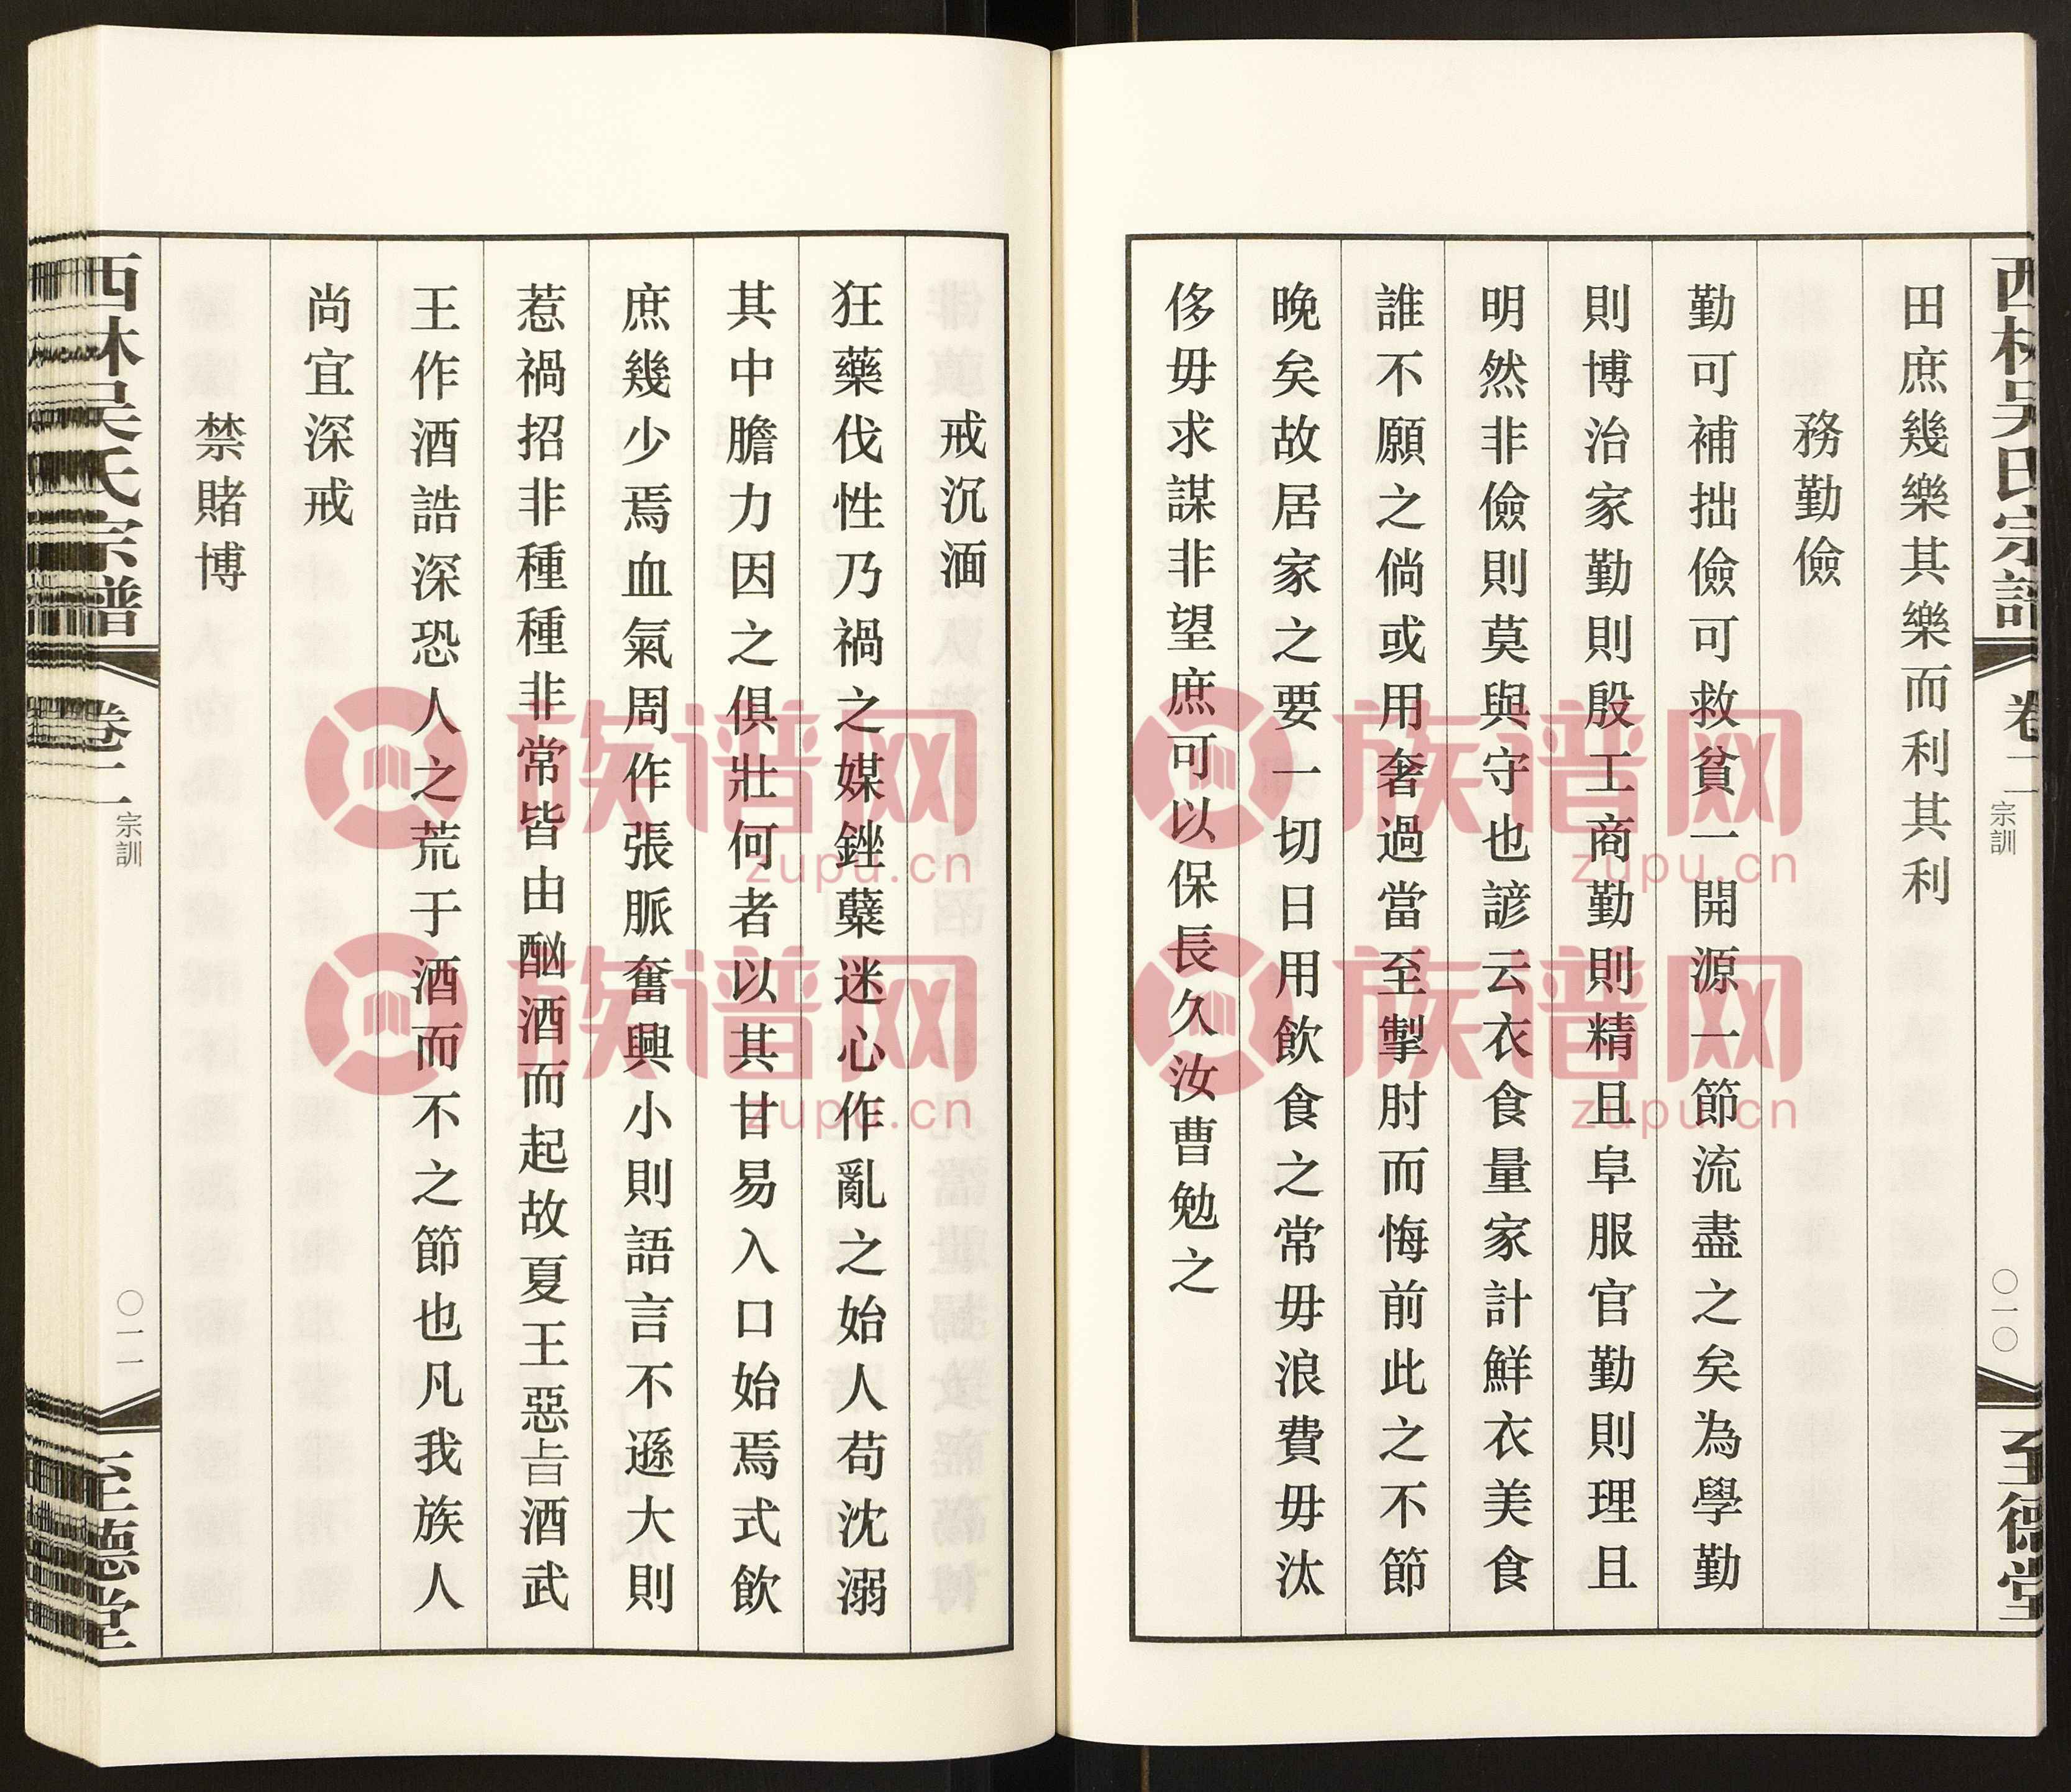 西林吳氏宗譜
卷二
宗訓
〇一〇
至德堂
田庶幾樂其樂而利其利
務勤儉
勤可補拙儉可救貧一開源一節流盡之矣為學勤
則博治家勤則殷工商勤則精且阜服官勤則理且
明然非儉則莫與守也諺云衣食量家計鮮衣美食
誰不願之倘或用奢過當至掣肘而悔前此之不節
晚矣故居家之要一切日用飲食之常毋浪費毋汰
侈毋求謀非望庶可以保長久汝曹勉之
戒沉湎
狂藥伐性乃禍之媒銼蘖迷心作亂之始人苟沈溺
其中膽力因之俱壯何者以其甘易入口始焉式飲
庶幾少焉血氣周作張脈奮興小則語言不遜大則
惹禍招非種種非常皆由酗酒而起故夏王惡㫖酒武
王作酒誥深恐人之荒于酒而不之節也凡我族人
尚宜深戒
禁賭博
西林吳氏宗譜
卷二
宗訓
〇一一
至德堂
族谱网
zupu.cn
族谱网
zupu.cn
族谱网
zupu.cn
族谱网
zupu.cn